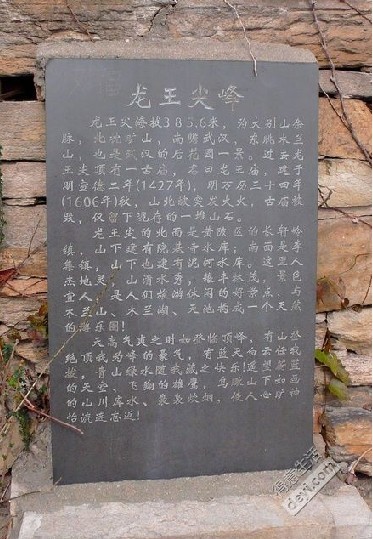 龙王尖峰
龙王尖海拔385.6米，为大别山余
脉，北地矿山，南瞻武汉，东眺木兰
山，也是武汉的后花园一景。过去龙
王尖顶有一古庙，名曰龙王庙，建于
明宣德二年(1427年)，明万历三十四年
(1606年)秋，山北欲突发火灾，古庙被
毁，仅留下现存的一堆山石。
龙王尖的北面是黄陂区的长轩岭
镇，山下建有院基寺水库；南面是李
集镇，山下也建有泥河水库。这里人
杰地灵，山清水秀，林丰木茂，景色
宜人，是人们旅游休闲的好景点，与
木兰山、木兰湖、天池构成一个天然
的游乐圈！
天高气爽之时如登临顶峰，有山登
绝顶我为峰的景气，有蓝天白云任我
揽，青山绿水随我藏之快乐！遥望蔚蓝
的天空、飞翔的雄鹰，鸟瞰山下如画
的山川库水、袅袅炊烟，使人心旷神
怡流连忘返！
得意生活
deyi.com